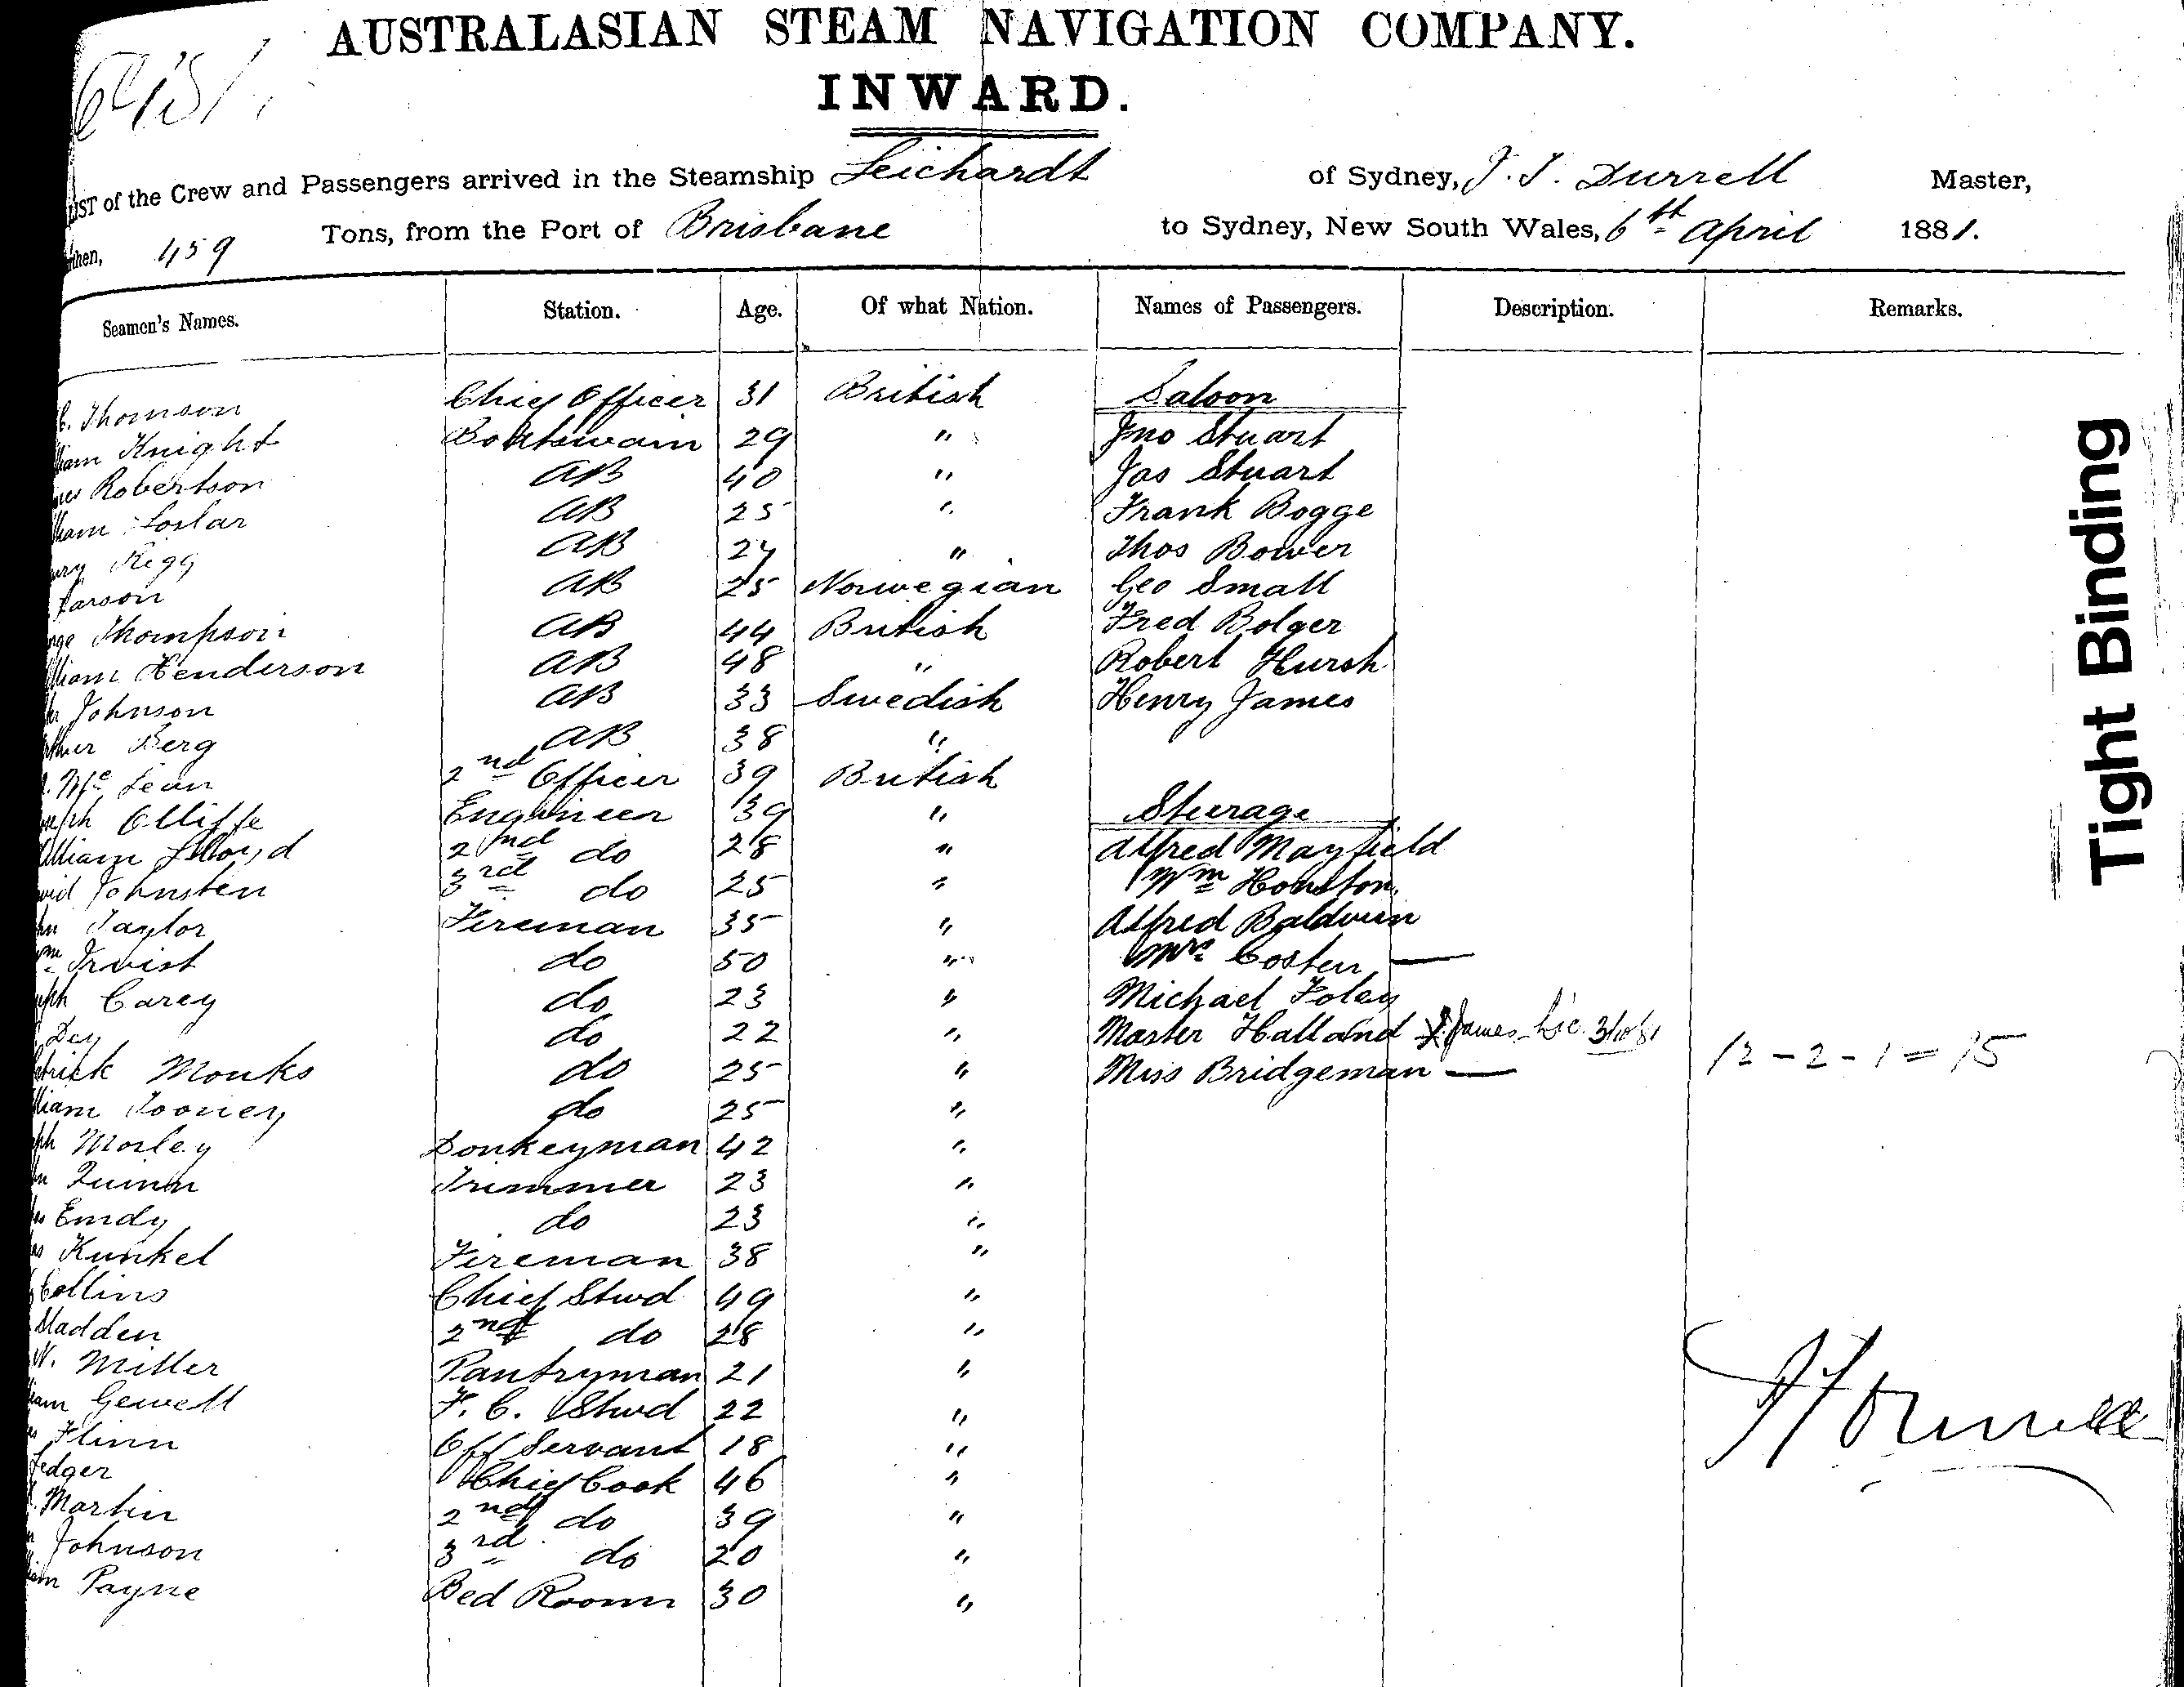 AUSTRALASIAN STEAM NAVIGATION COMPANY.
INWARD.
LIST of the Crew and Passengers arrived in the Steamship Leichardt of Sydney, J. J. Durrell Master,
459 Tons, from the Port of Brisbane to Sydney, New South Wales, 6th April 1881.
Seamen's Names. Station. Age. Of what Nation. Names of Passengers. Description. Remarks.
Thomson Chief Officer 31 British Saloon
Knight Boatswain 29 " Jno Stuart
Robertson AB 40 " Jas Stuart
AB 25 " Frank Bogge
Rigg AB 27 " Thos Bower
AB 25 Norwegian Geo Small
Thompson AB 44 British Fred Bolger
Henderson AB 48 " Robert Hursh
Johnson AB 33 Swedish Henry James
Berg AB 38 "
McLean 2nd Officer 39 British
Olliffe Engineer 39 " Steerage
2nd do 28 " Alfred Mayfield
Johnsten 3rd do 25 " Wm Houston
Taylor Fireman 35 " Alfred Baldwin
do 50 " Mrs Costen —
Carey do 23 " Michael Foley
Dey do 22 " Master Halland James
Monks do 25 " Miss Bridgeman — 12-2-1=15
do 25 "
Morley Donkeyman 42 "
Quinn Trimmer 23 "
Emdy do 23 "
Kunkel Fireman 38 "
Collins Chief Stwd 49 "
Madden 2nd do 28 "
W. Miller Pantryman 21 "
Gewell F. C. Stwd 22 "
Flinn Off Servant 18 "
Chief Cook 46 "
Martin 2nd do 39 "
Johnson 3rd do 20 "
Payne Bed Room 30 "
Tight Binding